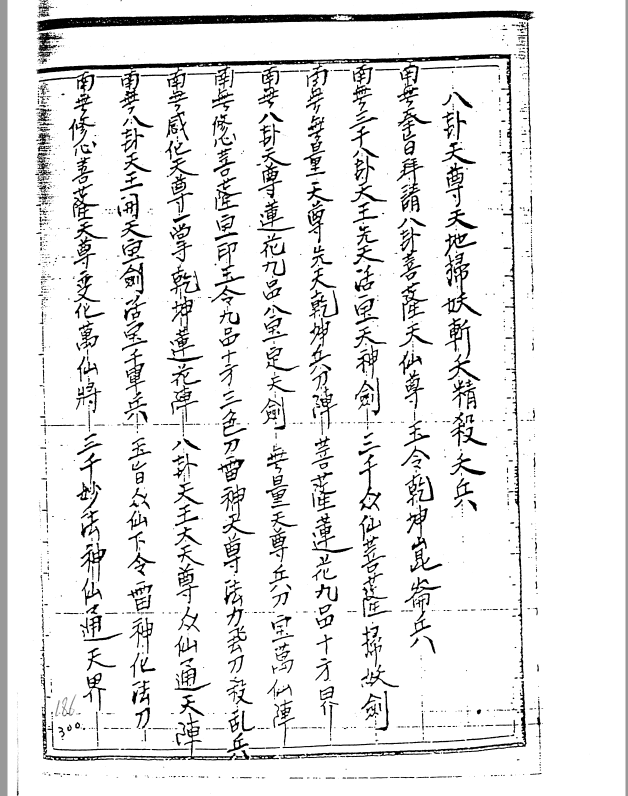 八卦天尊天地掃妖斬夭精殺夭兵
南無奉旨拜請八卦菩薩天仙尊玉令乾坤崑崙兵
南無三千八卦天王先天活宝天神劍三千众仙菩薩掃妖劍
南無無量天尊先天乾坤兵刀陣菩薩蓮花九品十方界
南無八卦天尊蓮花九品八宝定天劍無量天尊兵刀宝萬仙陣
南無修心菩薩宝印玉令九品十方三色刀雷神天尊法力飛刀殺乱兵
南無感化天尊一掌乾坤蓮花陣八卦天王大天尊众仙通天陣
南無八卦天王開天宝劍活宝千軍兵玉旨众仙下令雷神化法刀
南無修心菩薩天尊变化萬仙將三千妙法神仙通天界
186
300